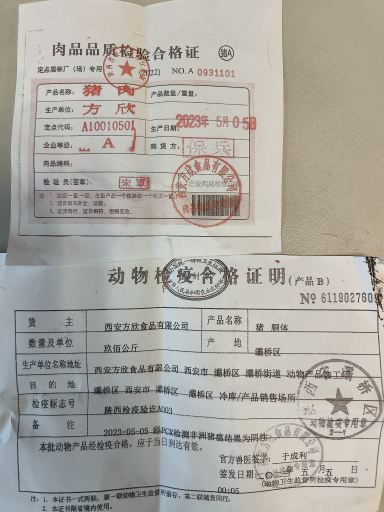 肉品品质检验合格证 猪A
定点屠宰厂（场）专用 (2022) NO.A 0931101
产品名称: 猪肉 产品数量/重量:
生产单位: 方欣
定点代码: A10010501 生产日期: 2023年5月05日
企业等级: A 购货方: 保兵
肉品编码:
检验员(签章):
西安方欣食品有限公司
动物检疫合格证明(产品B)
№ 6119027809
货主 西安方欣食品有限公司 产品名称 猪 胴体
数量及单位 玖佰公斤 产地 灞桥区
生产单位名称地址 西安方欣食品有限公司 西安市 灞桥区 灞桥街道
目的地 灞桥区 西安市 灞桥区 冷库/产品销售场所
检疫标志号 陕西检疫验讫A003
备注 2023-05-05 经PCR检测非洲猪瘟结果为阴性
本批动物产品经检疫合格，应于当日到达有效。
官方兽医签字 于成利
签发日期 二〇二三年五月五日
00:05
(动物卫生监督所检疫专用章)
注: 1. 本证书一式两联，第一联动物卫生监督所留存，第二联随货同行。
2. 本证书限省境内使用。